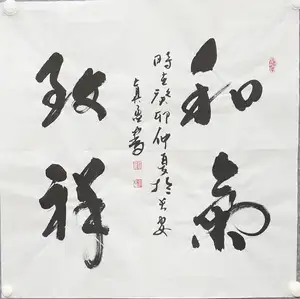 和氣
致祥
時在癸卯仲夏於
書